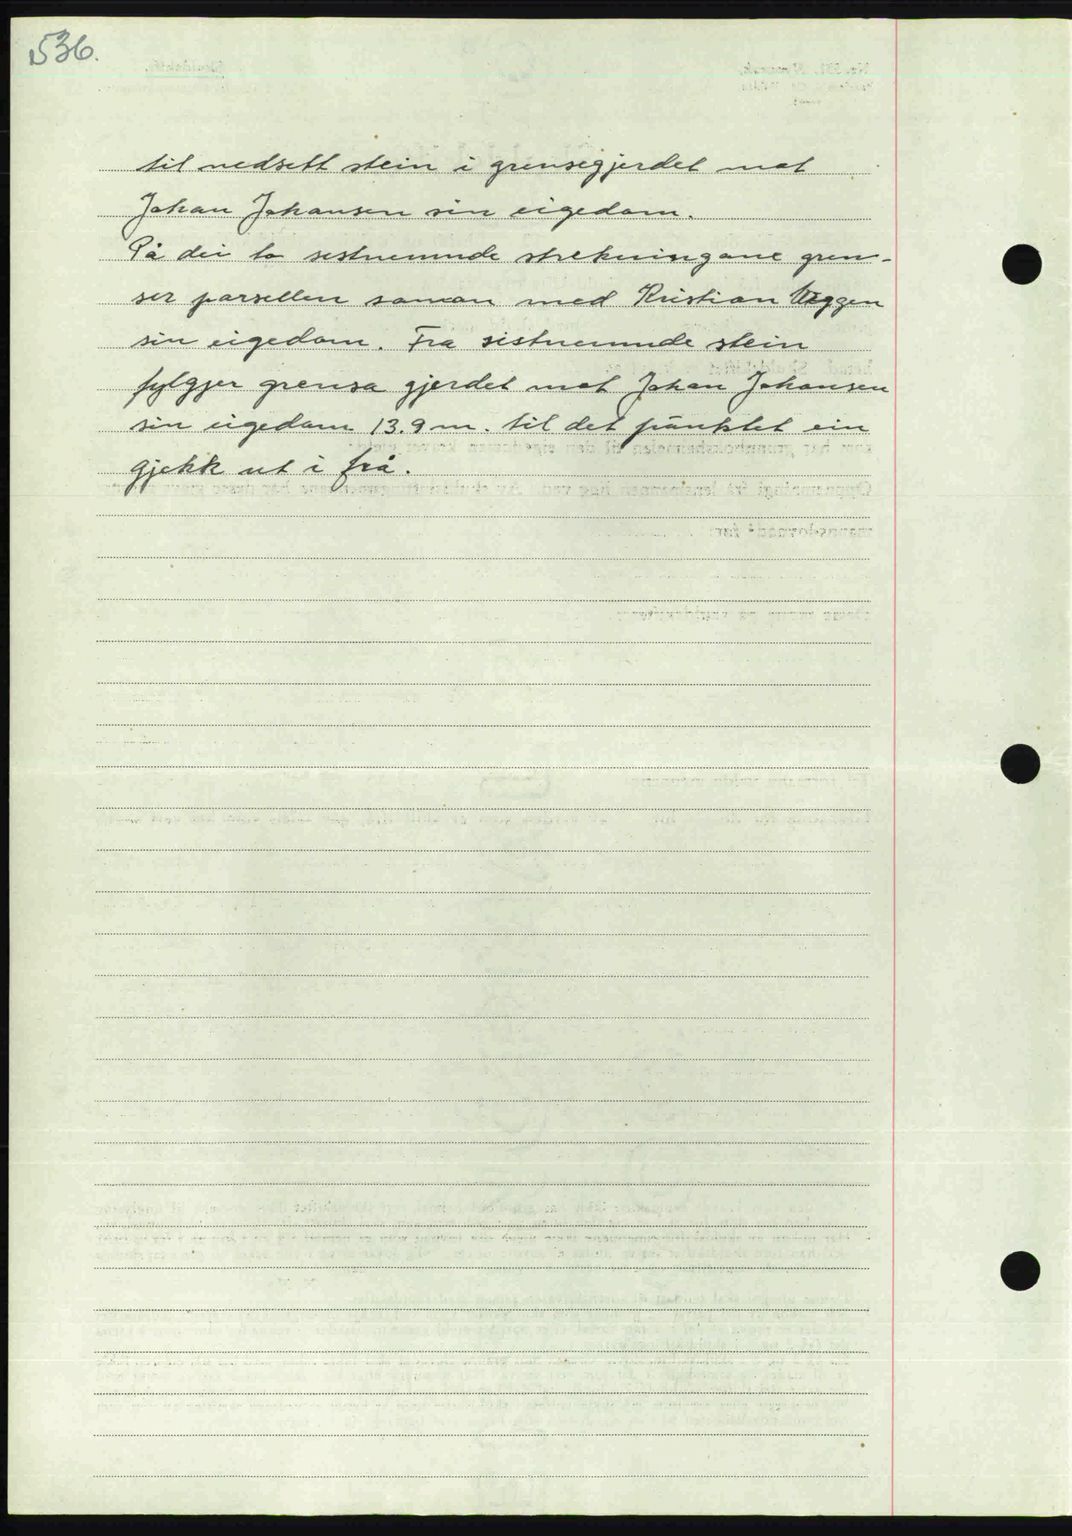 536.
til nedsett stein i grensegjerdet mot
Johan Johansen sin eigedom.
På dei to sistnemnde strekningane gren-
ser parsellen saman med Kristian Viggen
sin eigedom. Fra sistnemnde stein
fylgjer grensa gjerdet mot Johan Johansen
sin eigedom 13.9 m. til det punktet ein
gjekk ut i frå.